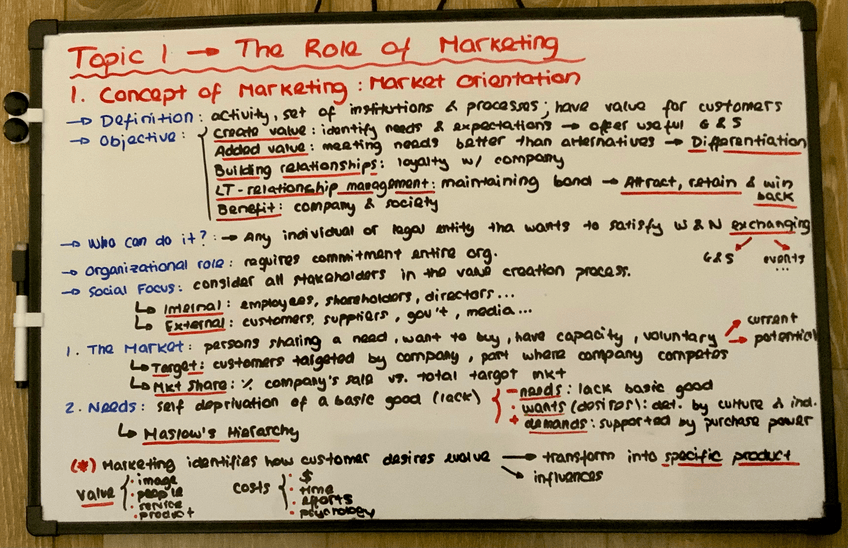 Topic 1 → The Role of Marketing
1. Concept of Marketing : Market Orientation
→ Definition : activity, set of institutions & processes ; have value for customers
→ Objective : create value : identify needs & expectations → offer useful G & S
Added value : meeting needs better than alternatives → Differentiation
Building relationships : loyalty w/ company
LT-relationship management : maintaining bond → Attract, retain & win back
Benefit : company & society
→ Who can do it? : → Any individual or legal entity tha wants to satisfy W & N exchanging
G & S events ...
→ Organizational role : requires commitment entire org.
→ Social Focus : consider all stakeholders in the value creation process.
↳ Internal : employees, shareholders, directors ...
↳ External : customers, suppliers, gov't, media ...
1. The Market : persons sharing a need, want to buy, have capacity, voluntary ↗ current
→ potential
↳ Target : customers targeted by company, part where company competes
↳ Mkt share : % company's sale vs. total target mkt
2. Needs : self deprivation of a basic good (lack) { - needs : lack basic good
· wants (desires) : det. by culture & ind.
+ demands : supported by purchase power
↳ Maslow's Hierarchy
(*) Marketing identifies how customer desires evolve → transform into specific product
↘ influences
value { · image
· people
· service
· product
costs { · $
· time
· efforts
· psychology